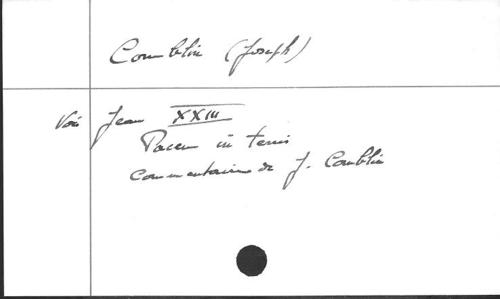 Comblin (Joseph)
Voir Jean XXIII
Pacem in terris
Commentaire de J. Comblin